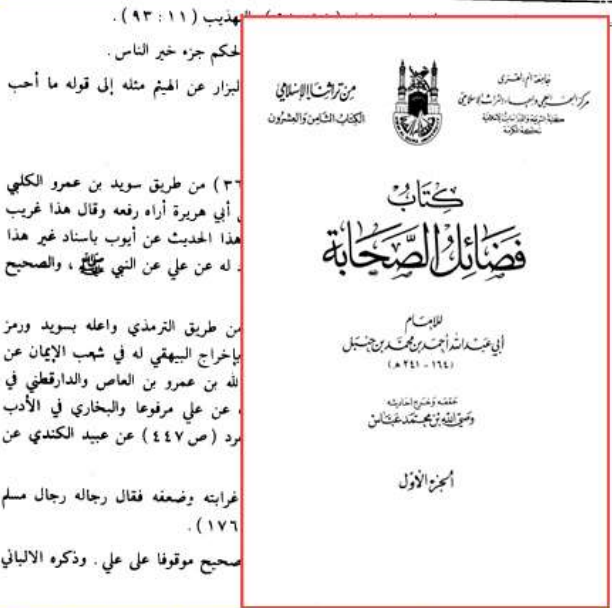 التهذيب (١١ : ٩٣) .
الحكم جزء خير الناس .
البزار عن الهيثم مثله إلى قوله ما أحب
من طريق سويد بن عمرو الكلبي
أبي هريرة أراه رفعه وقال هذا غريب
هذا الحديث عن أيوب باسناد غير هذا
له عن علي عن النبي ﷺ ، والصحيح
من طريق الترمذي واعله بسويد ورمز
بإخراج البيهقي له في شعب الإيمان عن
الله بن عمرو بن العاص والدارقطني في
عن علي مرفوعا والبخاري في الأدب
(ص ٤٤٧) عن عبيد الكندي عن
غرابته وضعفه فقال رجاله رجال مسلم
١٧٦) .
صحيح موقوفا على علي . وذكره الالباني
جامعة أم القرى
مركز البحث العلمي وإحياء التراث الإسلامي
كلية الشريعة والدراسات الإسلامية
مكة المكرمة
من تراثنا الإسلامي
الكتاب الثامن والعشرون
كتاب
فضائل الصحابة
للإمام
أبي عبد الله أحمد بن محمد بن حنبل
(١٦٤ - ٢٤١ هـ)
حققه وخرج أحاديثه
وصي الله بن محمد عباس
الجزء الأول